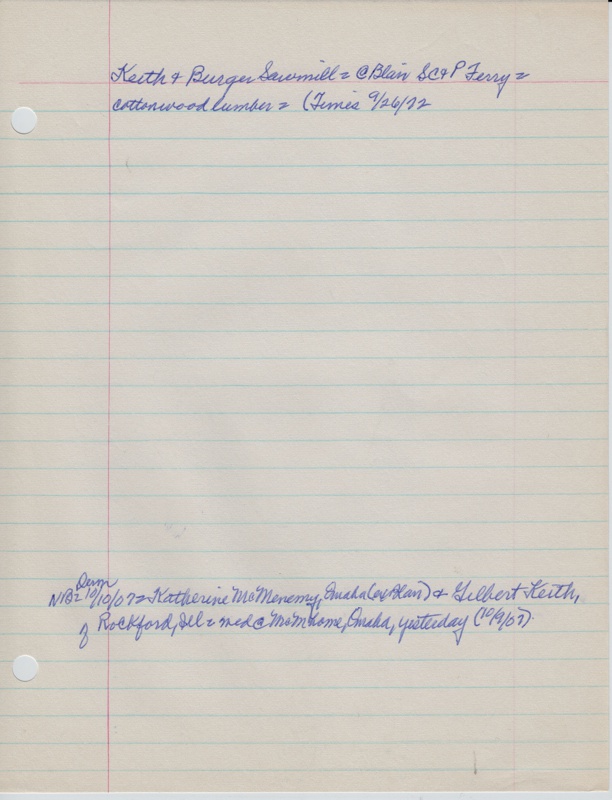 Keith & Burger Sawmill = @ Blair SC&P Ferry =
cottonwood lumber = (Times 9/26/72
Dem
NB = 10/10/07 = Katherine McMenemy, Omaha (ex Blair) & Gilbert Keith,
of Rockford, Ill = med @ McM home, Omaha, yesterday (10/9/07).